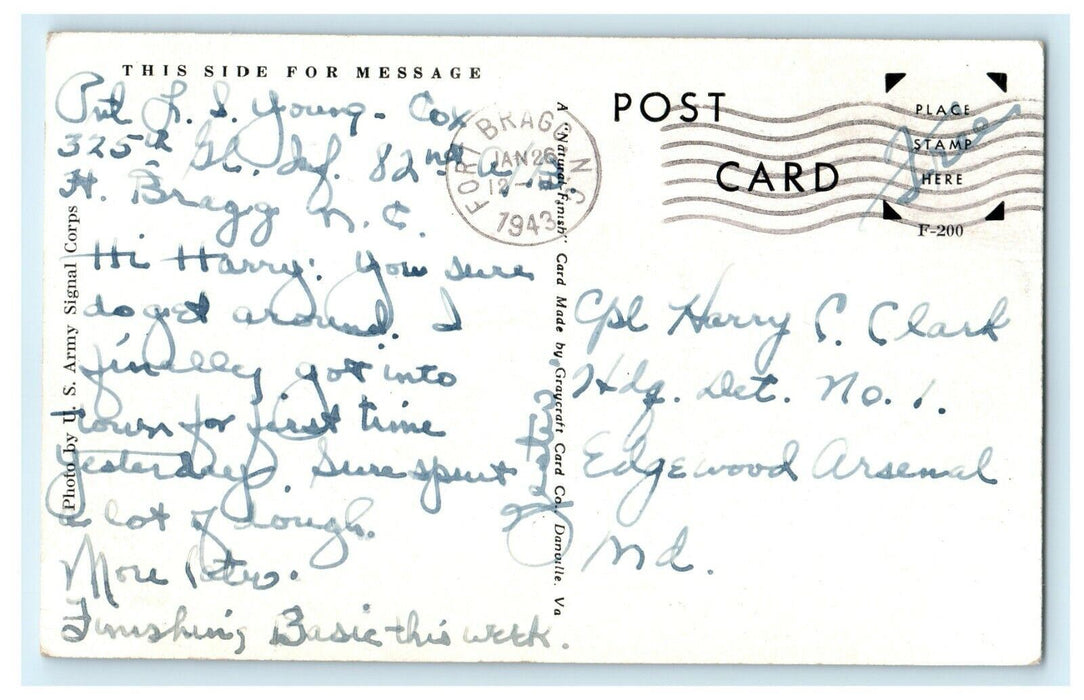 THIS SIDE FOR MESSAGE
Pvt L. S. Young - Co X
325th Gl. Inf. 82nd A/B.
Ft. Bragg N. C.
Hi Harry: You sure
do get around. I
finally got into
town for first time
yesterday. Sure spent
a lot of dough.
More later.
Finishing Basic this week.
Photo by U. S. Army Signal Corps
A "Natural-Finish" Card Made by Graycraft Card Co., Danville, Va
FORT BRAGG N.C.
JAN 26
12
1943
POST
CARD
PLACE
STAMP
HERE
F-200
Free
Cpl Harry C. Clark
Hdq. Det. No. 1.
Edgewood Arsenal
Md.